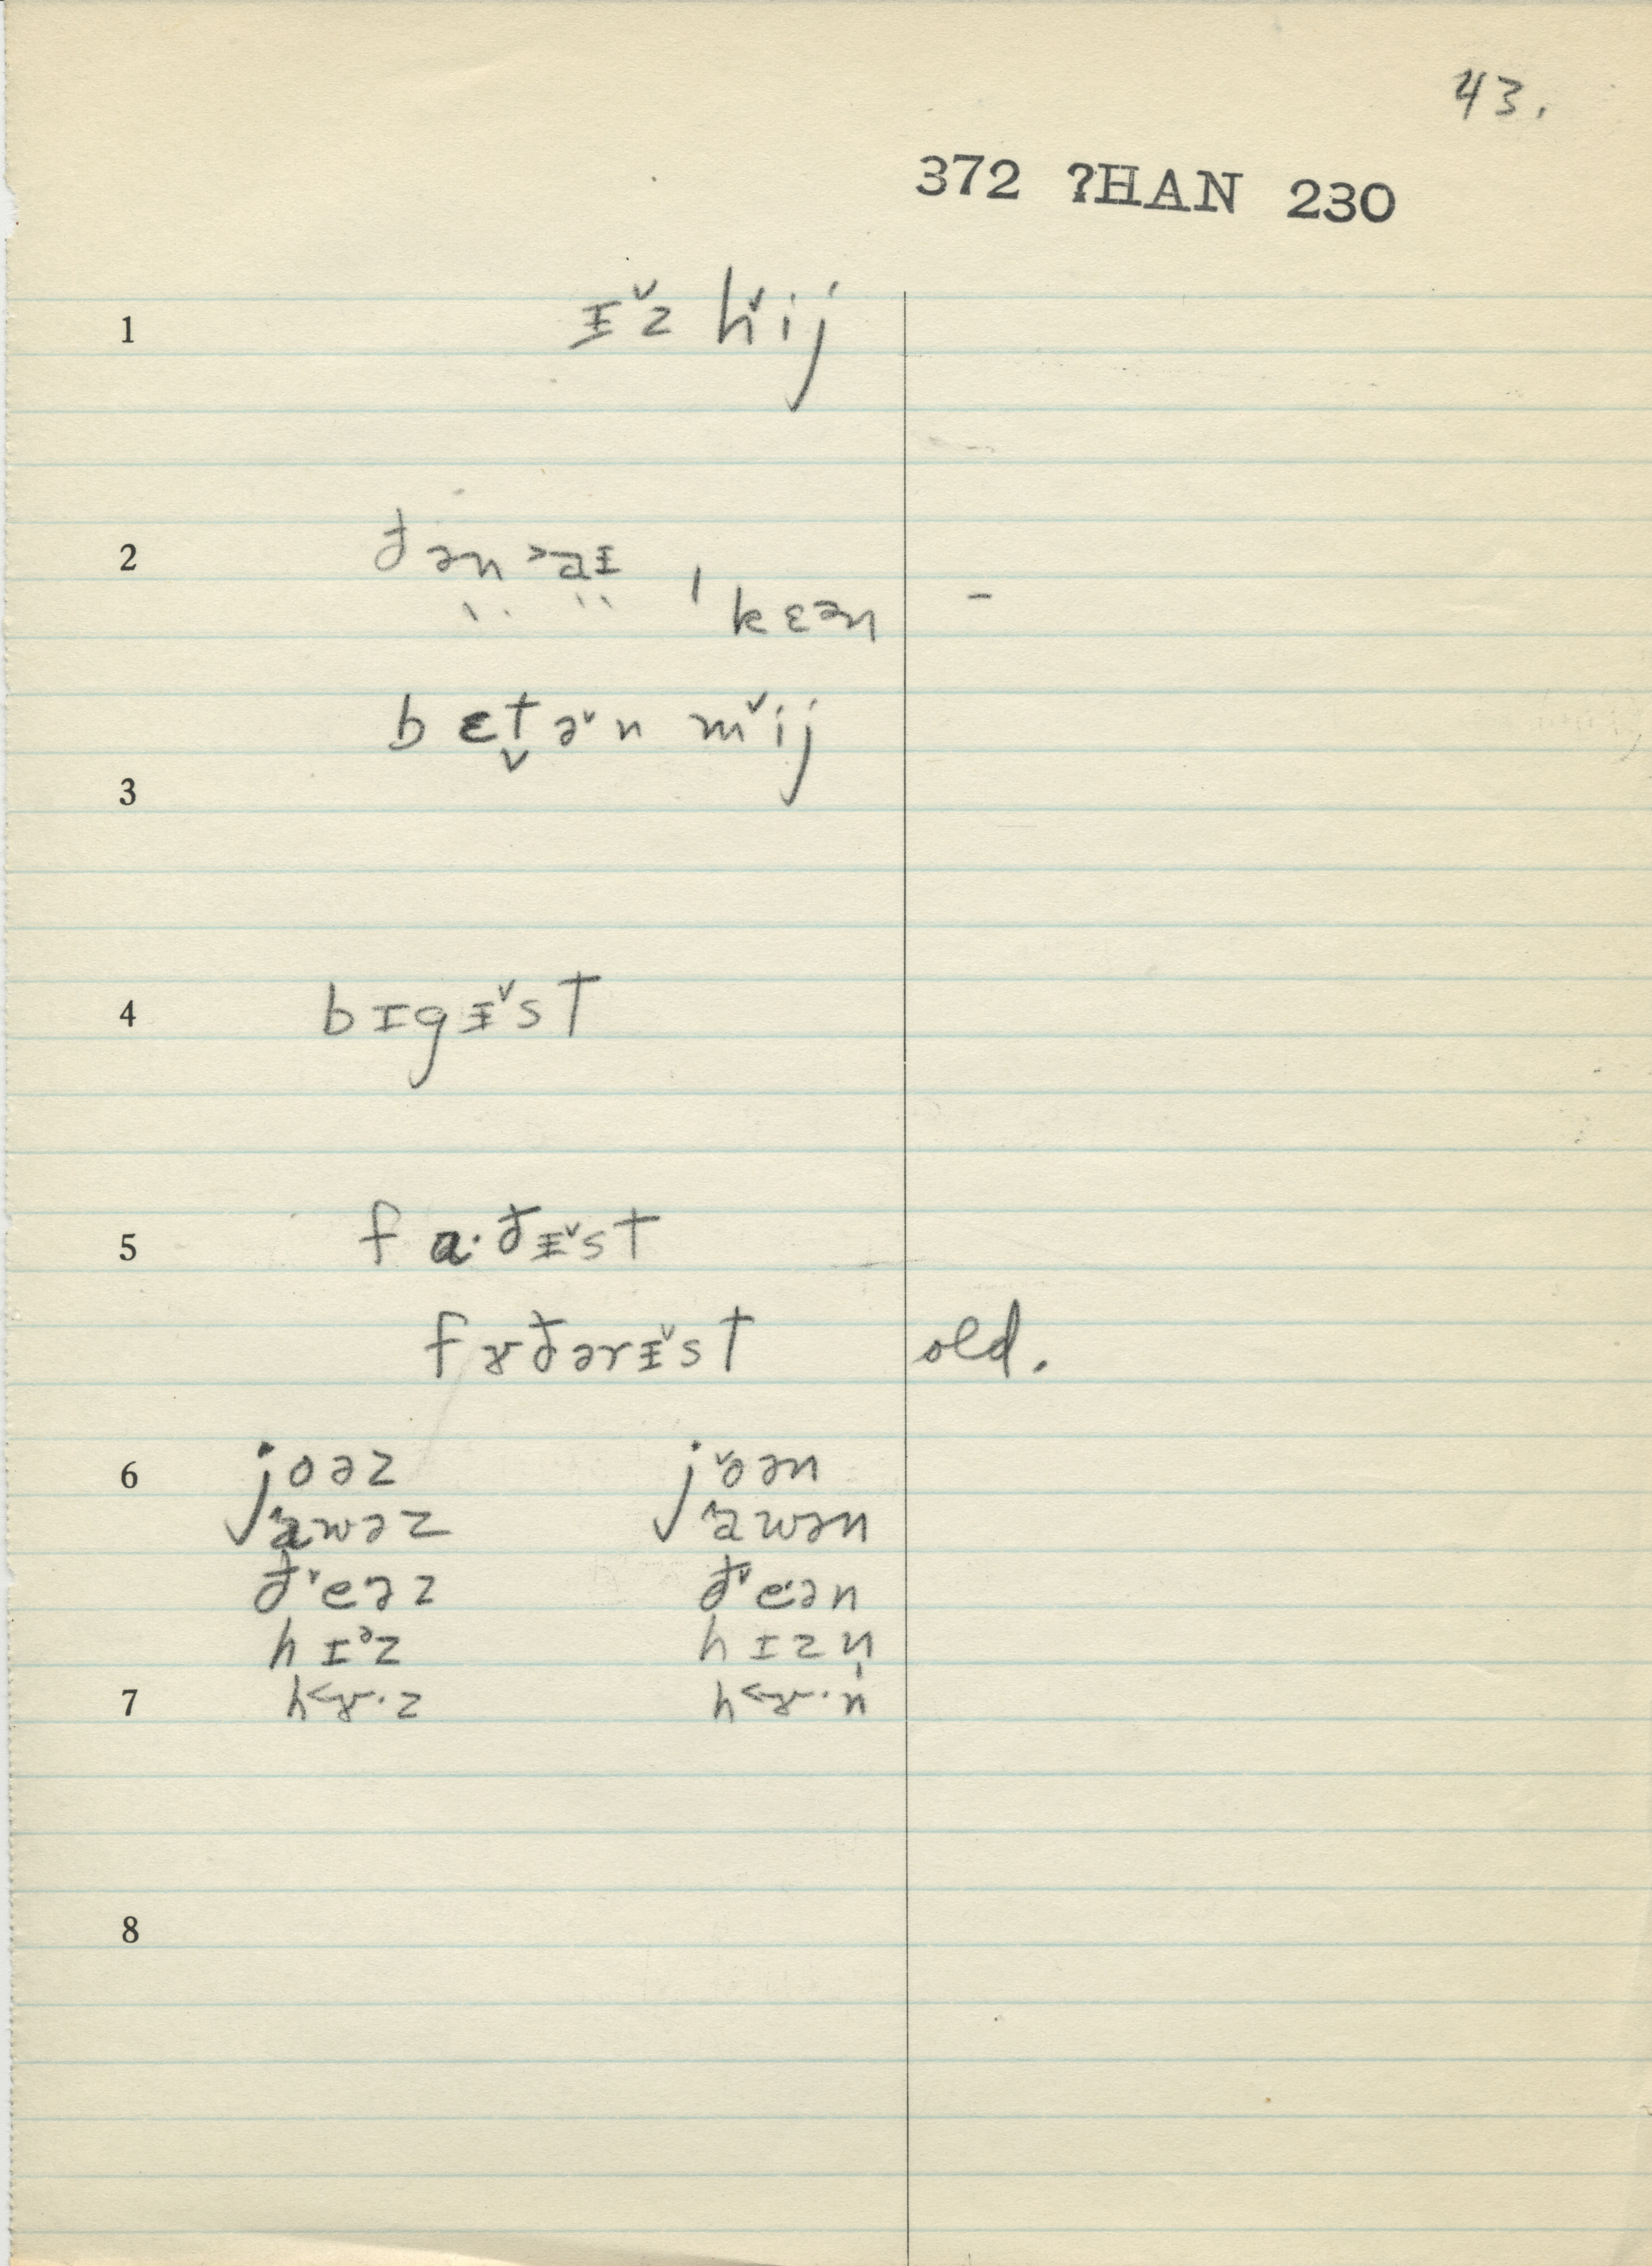 43.
372 ?HAN 230
1 ᵻ̌z ȟij
2 ðən ˃aᵻ ˈkɛən -
bɛt̬ə̌n m̌ij
3
4 bɪgᵻ̌st
5 fɑ·ðᵻ̌st
fɤðərᵻ̌st old.
6 joəz jˇoən
jawəz jawən
ðˇeəz ðˇeən
hɪᵊz hɪzn̩
7 h˂ɤ·z h˂ɤ·n
8